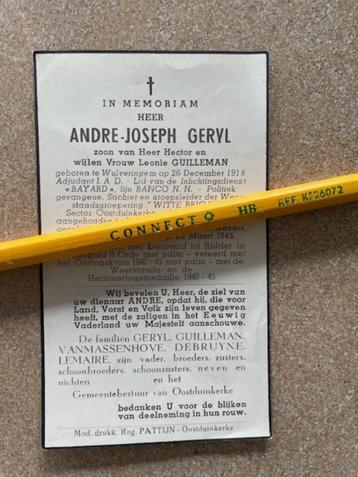 IN MEMORIAM
HEER
ANDRE-JOSEPH GERYL
zoon van Heer Hector en
wijlen Vrouw Leonie GUILLEMAN
geboren te Wulveringem op 26 December 1918
Adjudant I. A. D. - Lid van de Inlichtingsdienst
«BAYARD», lijn BANCO N. N. - Politiek
gevangene. Stichter en groepsleider der Weer-
standsgroepering "WITTE
Sector Oostduinkerke
CONNECT HB REF. KF26072
Maart 1945.
benoemd tot Ridder in
Leopold II Orde met palm - vereerd met
het Oorlogskruis 1940-45 met palm - met de
Weerstands- en de
Herinneringsmedaille 1940 - 45
Wij bevelen U, Heer, de ziel van
uw dienaar ANDRE, opdat hij, die voor
Land, Vorst en Volk zijn leven gegeven
heeft, met de zaligen in het Eeuwig
Vaderland uw Majesteit aanschouwe.
De familiën GERYL, GUILLEMAN,
VANMASSENHOVE, DEBRUYNE,
LEMAIRE, zijn vader, broeders, zusters,
schoonbroeders, schoonzusters, neven en
nichten en het
Gemeentebestuur van Oostduinkerke
bedanken U voor de blijken
van deelneming in hun rouw.
Mod. drukk. Rog. PATTIJN - Oostduinkerke